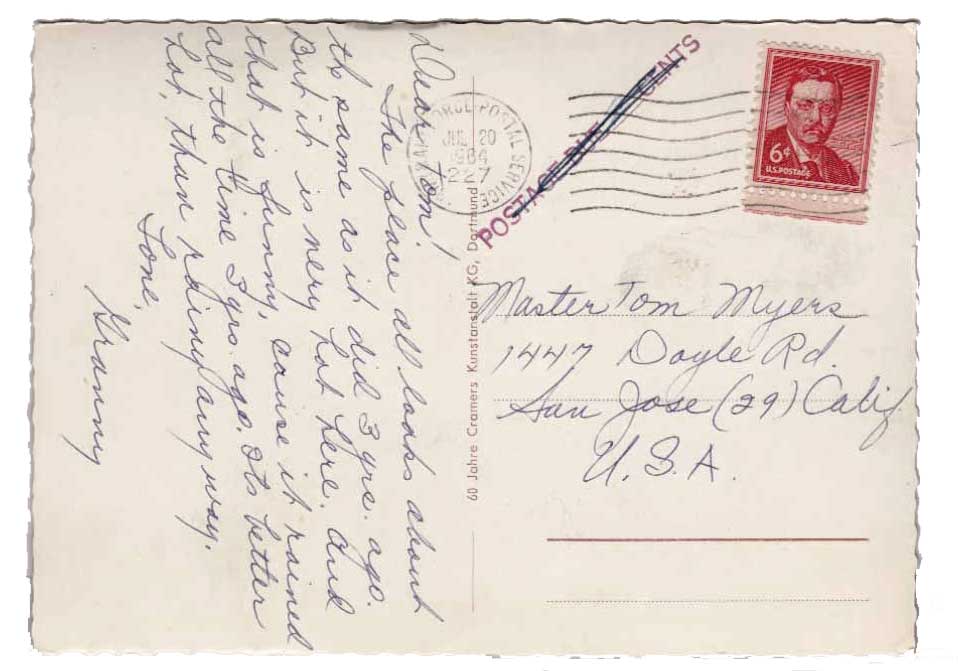 Dear Tom!
The place all looks about
the same as it did 3 yrs. ago.
But it is very hot here. And
that is funny, cause it rained
all the time 3 yrs. ago. Its better
hot, than rainy anyway.
Love,
Granny
60 Jahre Cramers Kunstanstalt KG, Dortmund
FORCE POSTAL SERVICE
JUL 20
1964
227
POSTAGE DUE CENTS
6¢
U.S. POSTAGE
Master Tom Myers
1447 Doyle Rd.
San Jose (29) Calif
U.S.A.